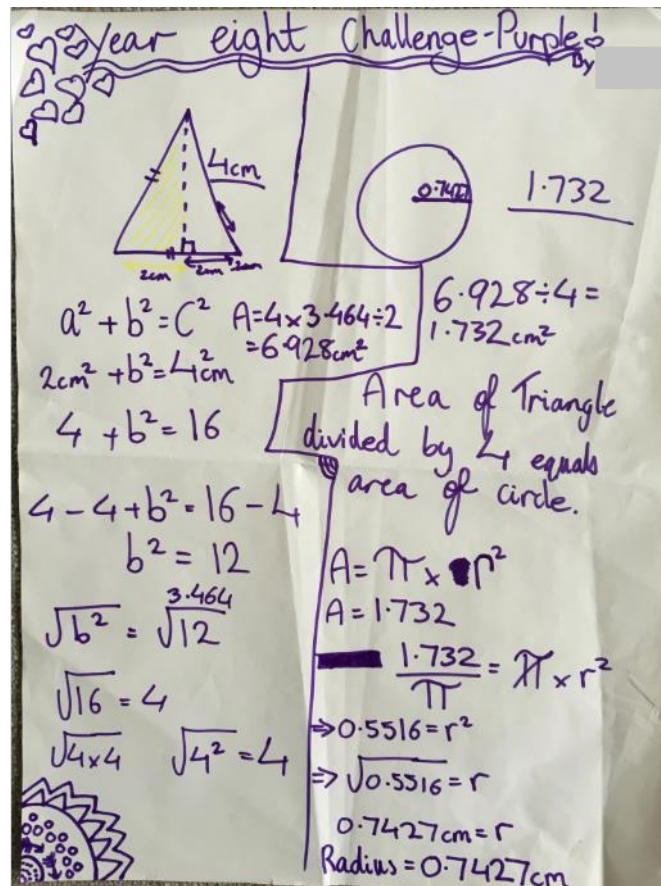 Year eight Challenge-Purple!
By
4cm
2cm
2cm
2cm
a² + b² = C²
2cm² + b² = 4cm²
4 + b² = 16
4 - 4 + b² = 16 - 4
b² = 12
3.464
√b² = √12
√16 = 4
√4×4 √4² = 4
A=4×3.464÷2
=6.928cm²
0.7427
1.732
6.928÷4=
1.732cm²
Area of Triangle
divided by 4 equals
area of circle.
A = π × r²
A = 1.732
1.732/π = π × r²
⇒ 0.5516 = r²
⇒ √0.5516 = r
0.7427cm = r
Radius = 0.7427cm